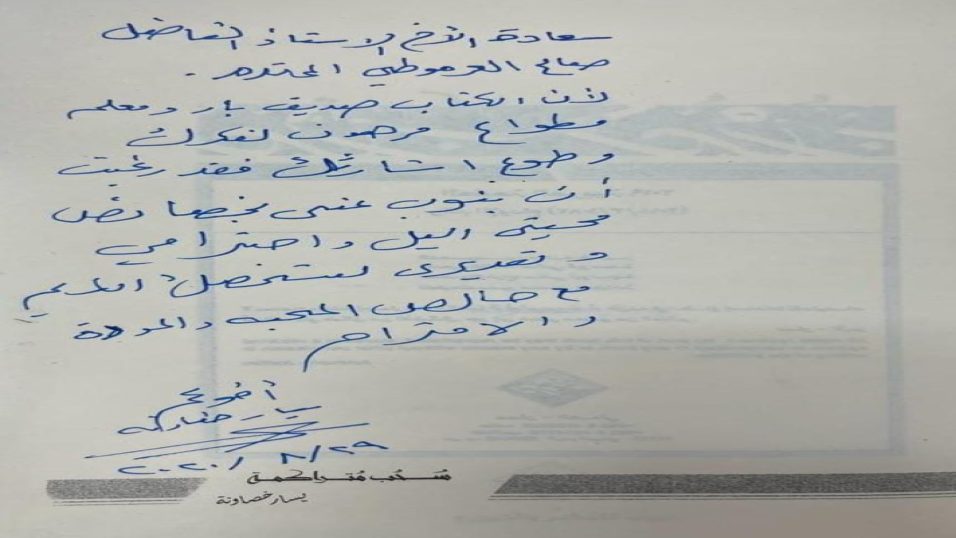 سعادة الأخ الاستاذ الفاضل
صالح العرموطي المحترم .
لأن الكتاب صديق بار ومعلم
مطواع مرهون لفكرك
وطوع اشارتك فقد رغبت
أن ينوب عني بخصائص
محبتي اليك واحترامي
وتقديري لشخصك الكريم
مع خالص المحبه والمودة
والاحترام
أخوكم
يسار خصاونه
٢٠٢٠/ ٨/ ٢٩
سُحُب مُتراكمة
يسار خصاونة